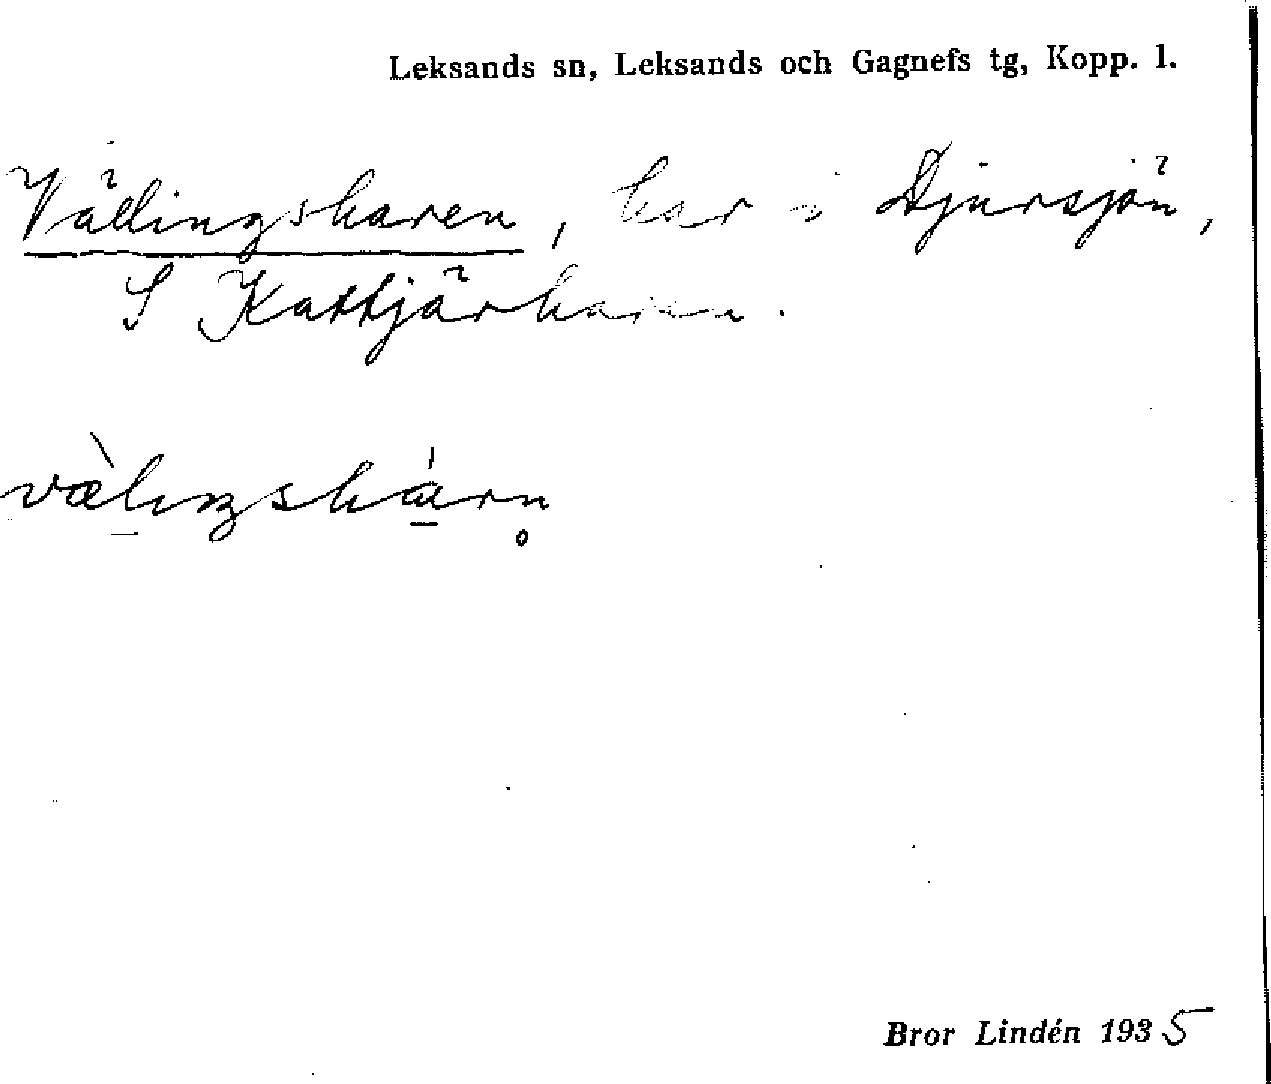 Leksands sn, Leksands och Gagnefs tg, Kopp. l.
Vällingsharen, har i Djursjön,
S Kattjärharen.
vælıŋshárn̥
Bror Lindén 1935